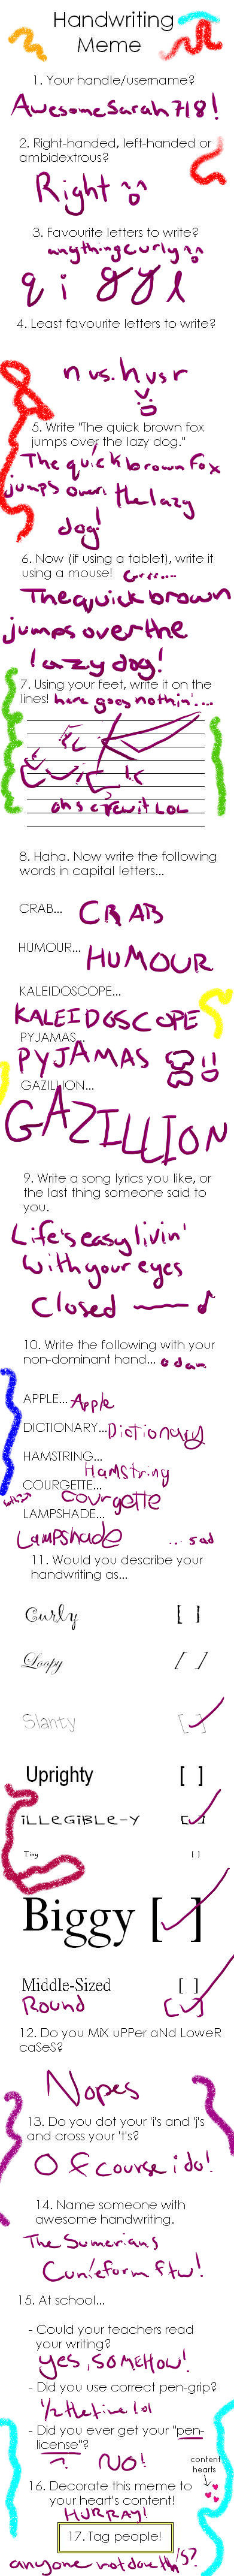 Handwriting
Meme
1. Your handle/username?
AwesomeSarah718!
2. Right-handed, left-handed or
ambidextrous?
Right
3. Favourite letters to write?
anything curly ^^
q i g y l
4. Least favourite letters to write?
n vs. h vs r
5. Write "The quick brown fox
jumps over the lazy dog."
The quick brown fox
jumps over the lazy
dog!
6. Now (if using a tablet), write it
using a mouse! Grrr....
The quick brown
jumps over the
lazy dog!
7. Using your feet, write it on the
lines! here goes nothin'...
oh screw it LOL
8. Haha. Now write the following
words in capital letters...
CRAB... CRAB
HUMOUR... HUMOUR
KALEIDOSCOPE...
KALEIDOSCOPE
PYJAMAS...
PYJAMAS
GAZILLION...
GAZILLION
9. Write a song lyrics you like, or
the last thing someone said to
you.
Life's easy livin'
with your eyes
closed
10. Write the following with your
non-dominant hand... o dam
APPLE... Apple
DICTIONARY... Dictionary
HAMSTRING...
Hamstring
COURGETTE...
Courgette
LAMPSHADE...
Lampshade ...sad
11. Would you describe your
handwriting as...
Curly [ ]
Loopy [ ]
Slanty [ ]
Uprighty [ ]
iLLeGiBLe-Y [ ]
Tiny [ ]
Biggy [ ]
Middle-Sized [ ]
Round [ ]
12. Do you MiX uPPer aNd LoweR
caSeS?
Nopes
13. Do you dot your 'i's and 'j's
and cross your 't's?
Of course i do!
14. Name someone with
awesome handwriting.
The Sumerians
Cuneiform ftw!
15. At school...
- Could your teachers read
your writing?
yes, SOMEHOW!
- Did you use correct pen-grip?
1/2 the time lol
- Did you ever get your "pen-
license"?
? NO!
content
hearts
16. Decorate this meme to
your heart's content!
HURRAY!
17. Tag people!
anyone not doin this?